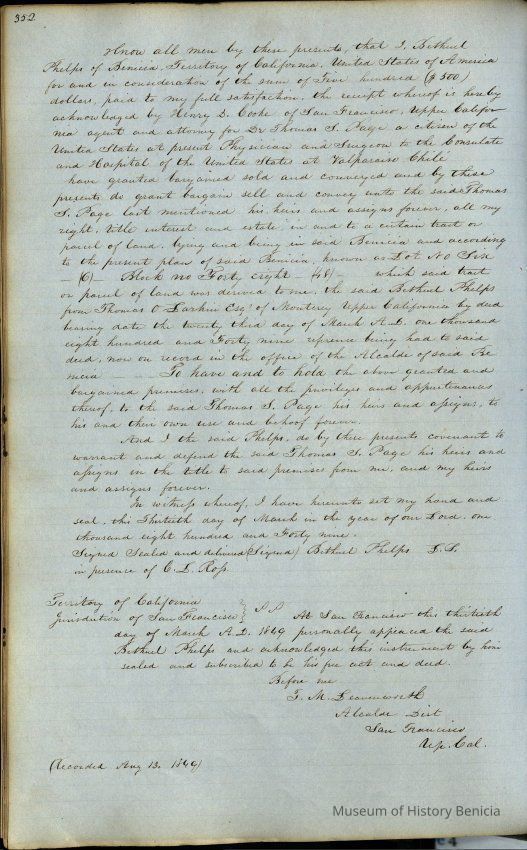 352.
Know all men by these presents, that I, Bethuel
Phelps of Benicia, Territory of California, United States of America
for and in consideration of the sum of Five hundred ($500)
dollars, paid to my full satisfaction, the receipt whereof is hereby
acknowledged by Henry D. Cooke of San Francisco, Upper Califor
nia agent and attorney for Dr Thomas S. Page a citizen of the
United States at present Physician and Surgeon to the Consulate
and Hospital of the United States at Valparaiso Chile
have granted bargained sold and conveyed and by these
presents do grant bargain sell and convey unto the said Thomas
S. Page last mentioned his heirs and assigns forever, all my
right, title interest and estate, in and to a certain tract or
parcel of land, lying and being in said Benicia and according
to the present plan of said Benicia, known as Lot No Six
— (6) — Block no Forty eight — (48) — which said tract
or parcel of land was derived to me, the said Bethuel Phelps
from Thomas O Larkin Esqr of Monterey Upper California by deed
bearing date the twenty third day of March A.D. one thousand
eight hundred and Forty nine reference being had to said
deed, now on record in the office of the Alcalde of said Be
nicia To have and to hold the above granted and
bargained premises, with all the privileges and appurtenances
thereof, to the said Thomas S. Page his heirs and assigns, to
his and their own use and behoof forever.
And I the said Phelps, do by these presents covenant to
warrant and defend the said Thomas S. Page his heirs and
assigns in the title to said premises from me, and my heirs
and assigns forever.
In witness whereof, I have hereunto set my hand and
seal, this Thirtieth day of March in the year of our Lord, one
thousand eight hundred and Forty nine.
Signed Sealed and delivered (Signed) Bethuel Phelps L.S.
in presence of C. L. Ross.
Territory of California
Jurisdiction of San Francisco } SS At San Francisco this thirtieth
day of March A.D. 1849 personally appeared the said
Bethuel Phelps and acknowledged this instrument by him
sealed and subscribed to be his free act and deed.
Before me
T. M. Leavenworth
Alcalde Dist
San Francisco
Up. Cal.
(Recorded Aug 13. 1849)
Museum of History Benicia